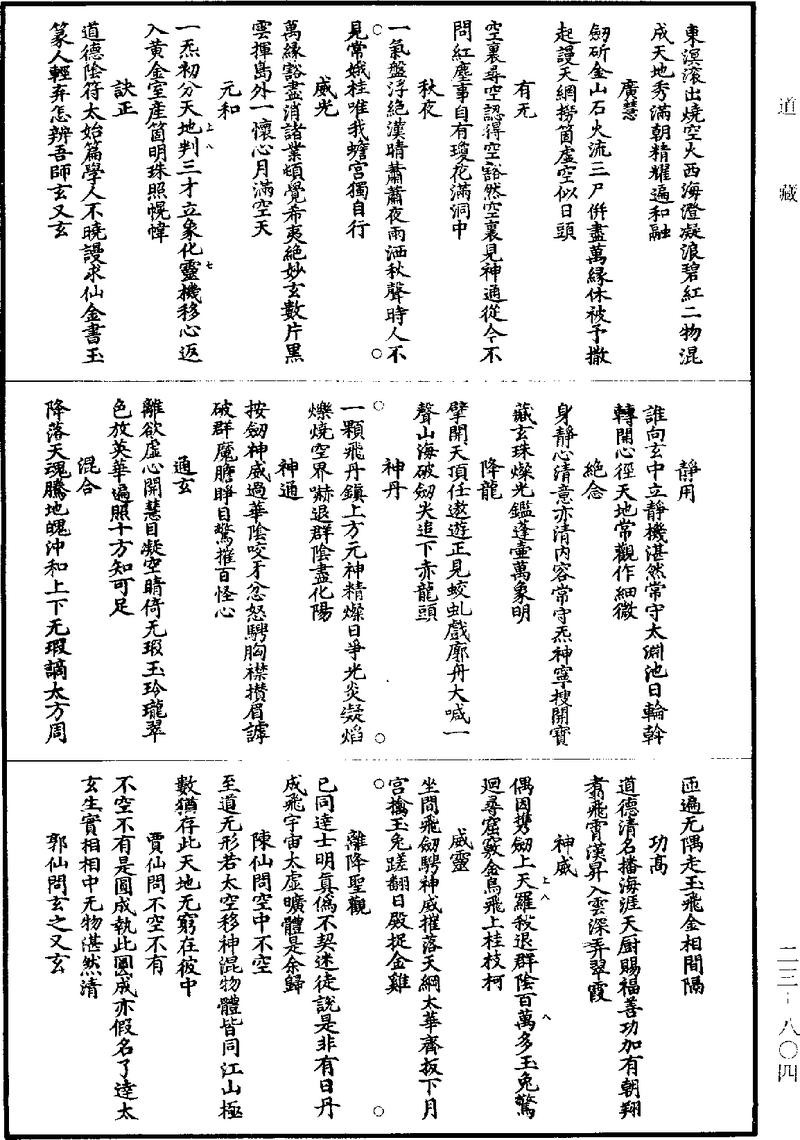 道藏
東溟滾出燒空火西海澄凝浪碧紅二物混
成天地秀滿朝精耀遍和融
廣慧
劒斫金山石火流三尸併盡萬緣休被予撒
起謾天網撈箇虛空似日頭
有无
空裏尋空認得空豁然空裏見神通從今不
問紅塵事自有瓊花滿洞中
秋夜
一氣盤浮絕漢晴蕭蕭夜雨洒秋聲時人不
見常娥桂唯我蟾宮獨自行
威光
萬緣豁盡消諸業頓覺希夷絕妙玄數片黑
雲揮島外一懷心月滿空天
元和
一炁初分天地判三才立象化靈機移心返
入黃金室産箇明珠照幌幃
訣正
道德陰符太始篇學人不曉謾求仙金書玉
篆人輕弃怎辨吾師玄又玄
靜用
誰向玄中立靜機湛然常守太淵池日輪斡
轉開心徑天地常觀作細微
絕念
身靜心清意亦清內容常守炁神寧搜開寶
藏玄珠燦光鑑蓬壺萬象明
降龍
擘開天頂任遨遊正見蛟虬戲廓舟大喊一
聲山海破劒尖追下赤龍頭
神丹
一顆飛丹鎮上方元神精燥日爭光炎凝焰
爍燒空界嚇退群陰盡化陽
神通
按劒神威過華陰咬牙忿怒騁胸襟攢眉謼
破群魔膽睜目驚摧百怪心
通玄
離欲虛心開慧目凝空睛倚无瑕玉玲瓏翠
色放英華遍照十方知可足
混合
降落天魂騰地魄沖和上下无瑕謫太方周
匝遍无隅走玉飛金相間隔
功高
道德清名播海涯天厨賜福善功加有朝翔
翥飛霄漢昇入雲深弄翠霞
神威
偶因携劒上天羅殺退群陰百萬多玉兔驚
迴尋窟竅金烏飛上桂枝柯
威靈
坐問飛劒騁神威摧落天綱太華齊扳下月
宮擒玉兔蹉翻日殿捉金雞
離降聖觀
已同達士明真僞不契迷徒說是非有日丹
成飛宇宙太虛曠體是余歸
陳仙問空中不空
至道无形若太空移神混物體皆同江山極
數猶存此天地无窮在彼中
賈仙問不空不有
不空不有是圓成執此圓成亦假名了達太
玄生實相相中无物湛然清
郭仙問玄之又玄
二三-八〇四